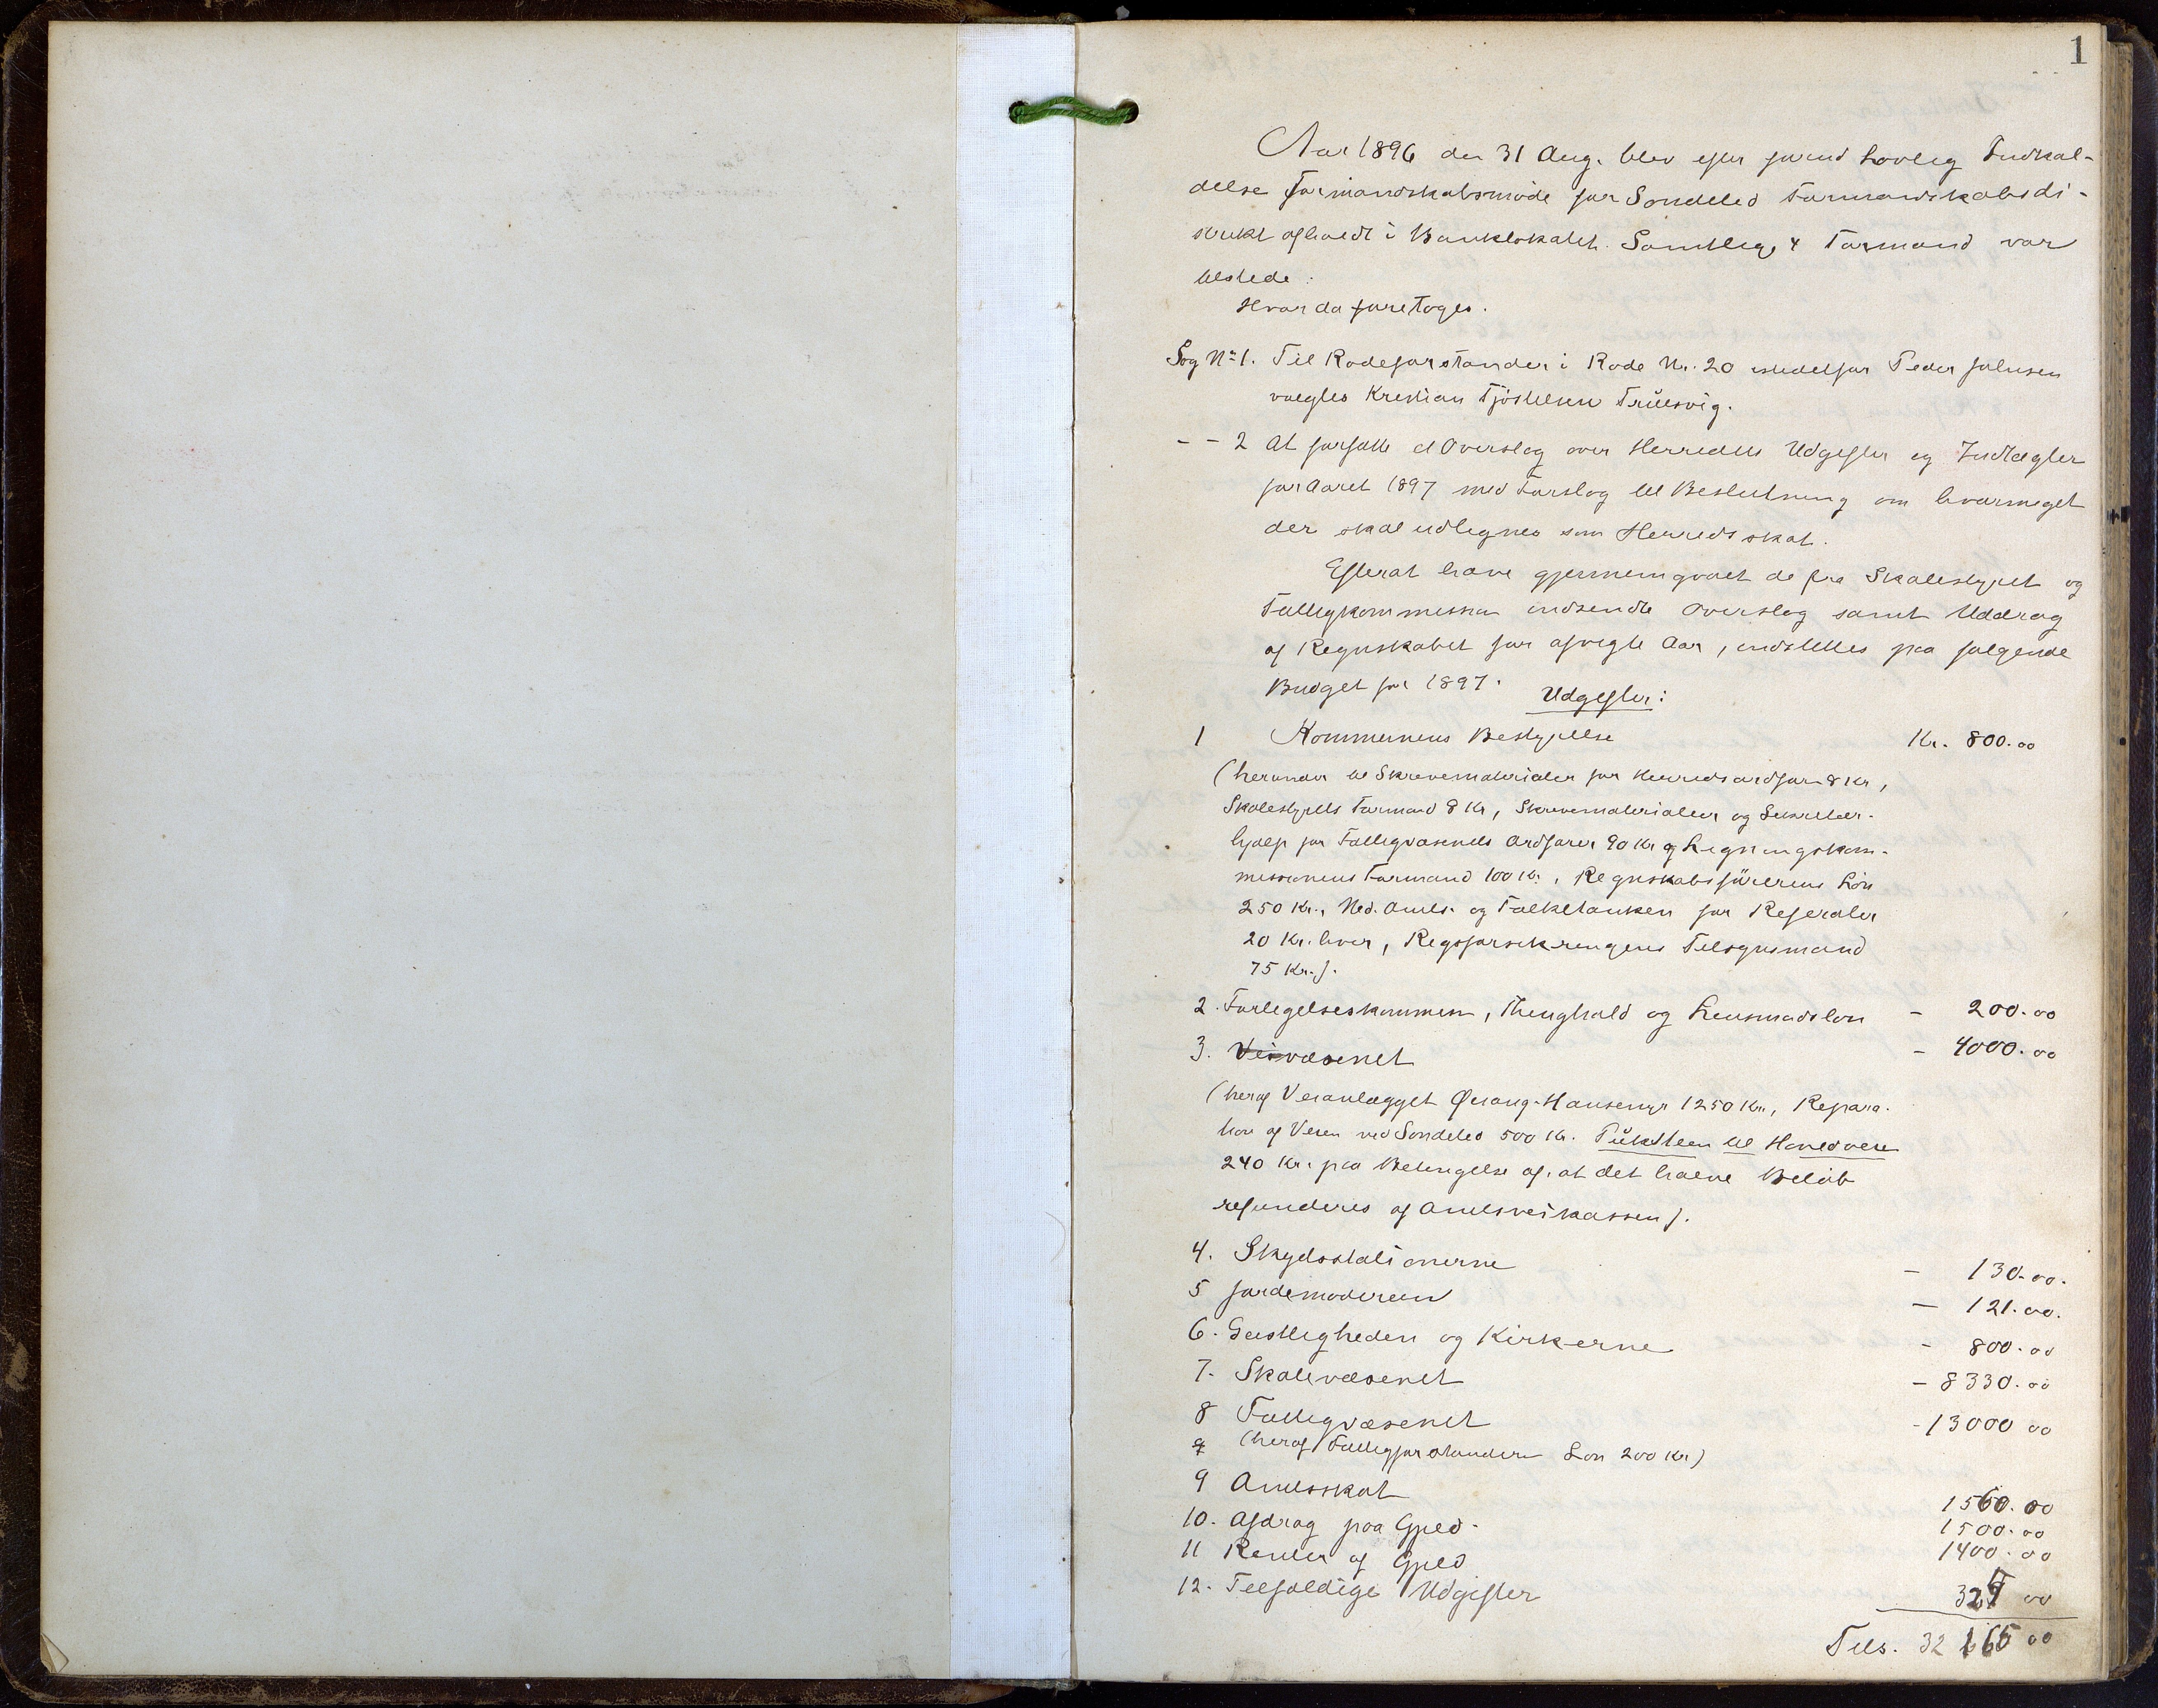 1
Aar 1896 den 31 Aug. blev efter forud lovlig Indkal-
delse Formandskabsmøde for Søndeled Formandskabsdi-
strikt afholdt i Banklokalet. Samtlige 4 Formænd var
tilstede.
Hvor da foretoges.
Sag No 1. Til Rodeforstander i Rode Nr. 20 istedetfor Peder Johnsen
valgtes Kristian Tjöstelsen Trulsvig.
- - 2 At forfatte et Overslag over Herredets Udgifter og Indtægter
for Aaret 1897 med Forslag til Beslutning om hvormeget
der skal udlignes som Herredsskat.
Efterat have gjennemgaaet de fra Skolestyret og
Fattigkommissionen indsendte Overslag samt Uddrag
af Regnskabet for afvigte Aar, indstilles paa følgende
Budget for 1897.
Udgifter:
1 Kommunens Bestyrelse Kr. 800.00
(herunder til Skrivematerialer for Herredsordfører 8 Kr,
Skolestyrets Formand 8 Kr, Skrivematerialer og Sekretær-
hjælp for Fattigvæsenets Ordfører 90 Kr og Ligningskom-
missionens Formand 100 Kr., Regnskabsførerens Løn
250 Kr., Ned. Amts. og Folketanken for Referater
20 Kr. hver, Rigsforsikringens Tilsynsmand
75 Kr.).
2. Forligelseskommission, Thinghold og Lensmandsløn - 200.00
3. Veivæsenet - 4000.00
(heraf Veianlægget Hansemyr 1250 Kr., Repara-
tion af Veien ved Søndeled 500 Kr. Puksten til Hovedveien
240 Kr. paa Betingelse af, at det halve Beløb
refunderes af Amtsveikassen).
4. Skydsstationerne - 130.00.
5 Jordemoderen - 121.00.
6. Geistligheden og Kirkerne - 800.00
7. Skolevæsenet - 8330.00
8 Fattigvæsenet - 13000 00
(heraf Fattigforstanderens Løn 200 Kr)
9 Amtsskat 1560.00
10. Afdrag paa Gjeld. 1500.00
11 Renter af Gjeld 1400.00
12. Tilfældige Udgifter 324 00
Tils. 32 165 00